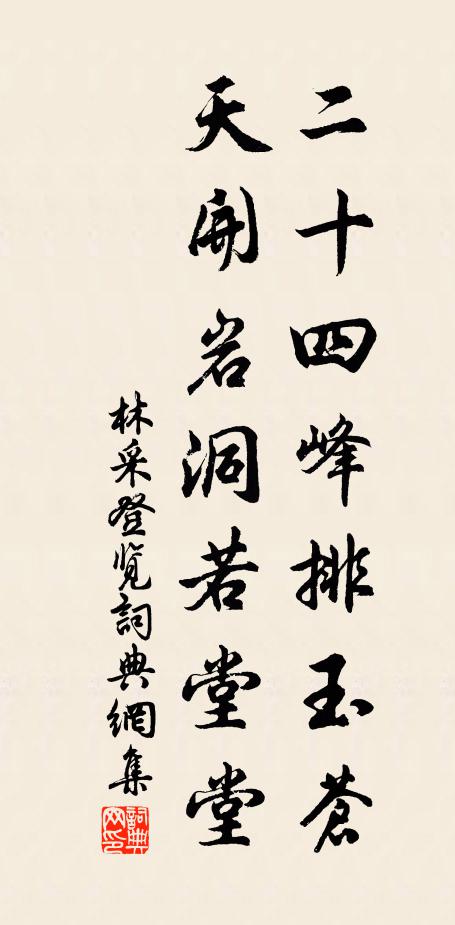 二十四峰排玉苍
天開岩洞若堂堂
林采登览詞典網集
詞典网印